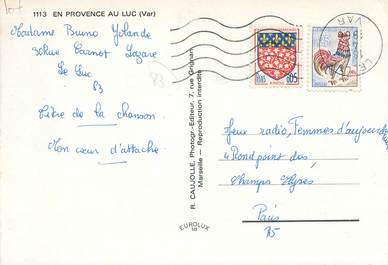 1113 EN PROVENCE AU LUC (Var)
Madame Bruno Yolande
30 Rue Carnot Lazare
Le Luc
83
Titre de la chanson
Mon cœur d'attache
83
R. CAUJOLLE, Photogr.-Editeur, 7, rue Grignan
Marseille — Reproduction interdite
EUROLUX
0,05
LE LUC
VAR
Jeux radio, Femmes d'aujourd'hui
4 Rond point des,
Champs Elysees
Paris
75